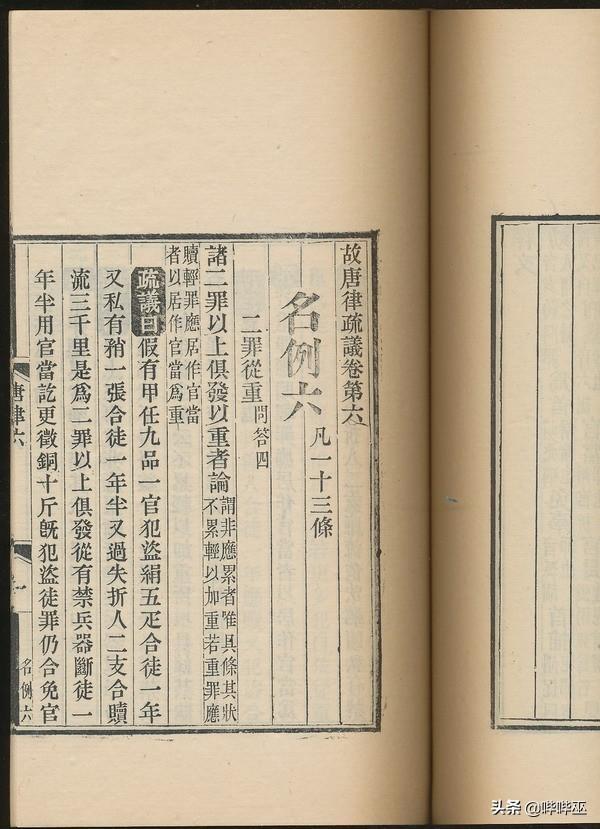 故唐律疏議卷第六
名例六
凡一十三條
二罪從重問答四
諸二罪以上俱發以重者論謂非應累者唯具條其狀
不累輕以加重若重罪應
贖輕罪應居作官當
者以居作官當爲重
疏議曰假有甲任九品一官犯盜絹五疋合徒一年
又私有矟一張合徒一年半又過失折人二支合贖
流三千里是爲二罪以上俱發從有禁兵器斷徒一
年半用官當訖更徵銅十斤旣犯盜徒罪仍合免官
唐律六
一
名例六
头条 @哔哔巫